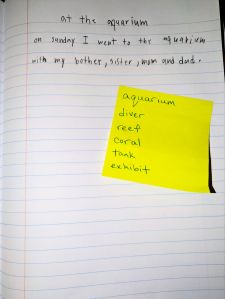 at the aquarium
on sunday I went to the aquarium
with my bother, sister, mom and dad.
aquarium
diver
reef
coral
tank
exhibit